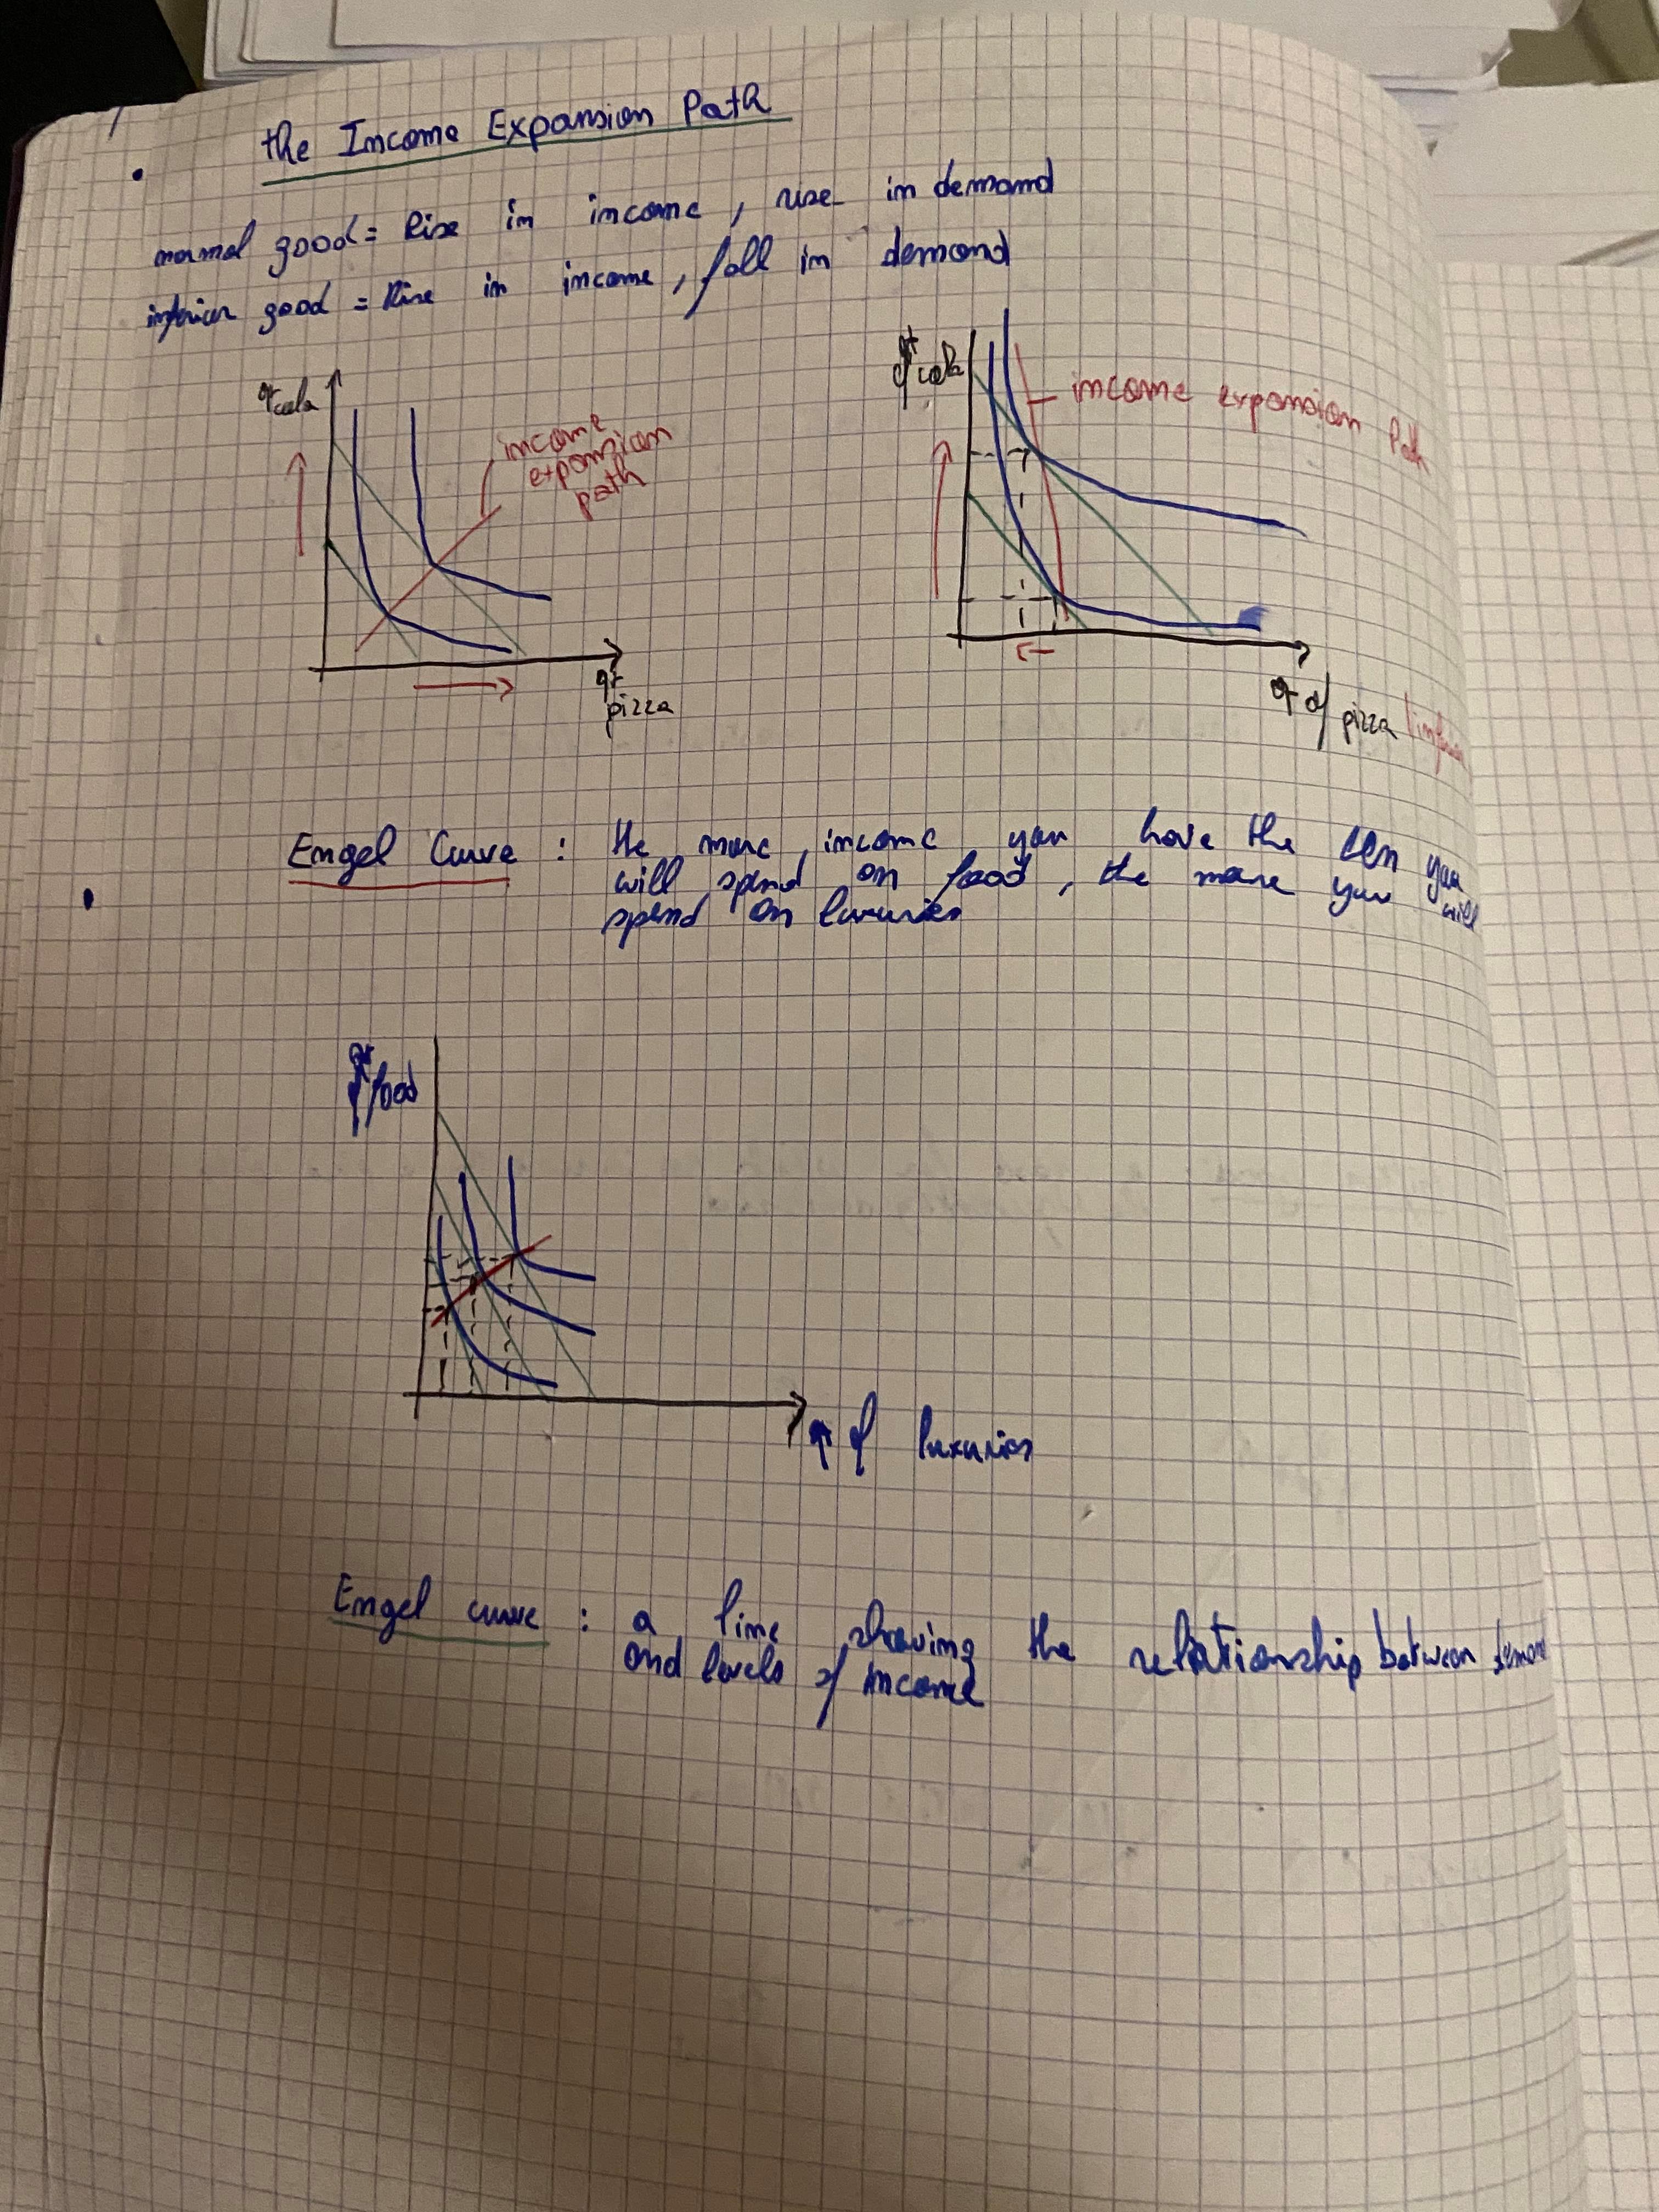 the Income Expansion Path
normal good = Rise in income, rise in demand
inferior good = Rise in income, fall in demand
qt cola
income
expansion
path
qt
pizza
qt
of cola
income expansion Path
qt of pizza (inferior
Engel Curve : the more income you have the less you
will spend on food, the more you will
spend on luxuries
qt
food
qt of luxuries
Engel curve : a line showing the relationship between demand
and levels of income